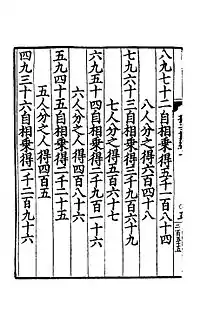 八九七十二自相乘得五千一百八十四
八人分之得六百四十八
七九六十三自相乘得三千九百六十九
七人分之得五百六十七
六九五十四自相乘得二千九百一十六
六人分之人得四百八十六
五九四十五自相乘得二千二十五
五人分之人得四百五
四九三十六自相乘得一千二百九十六